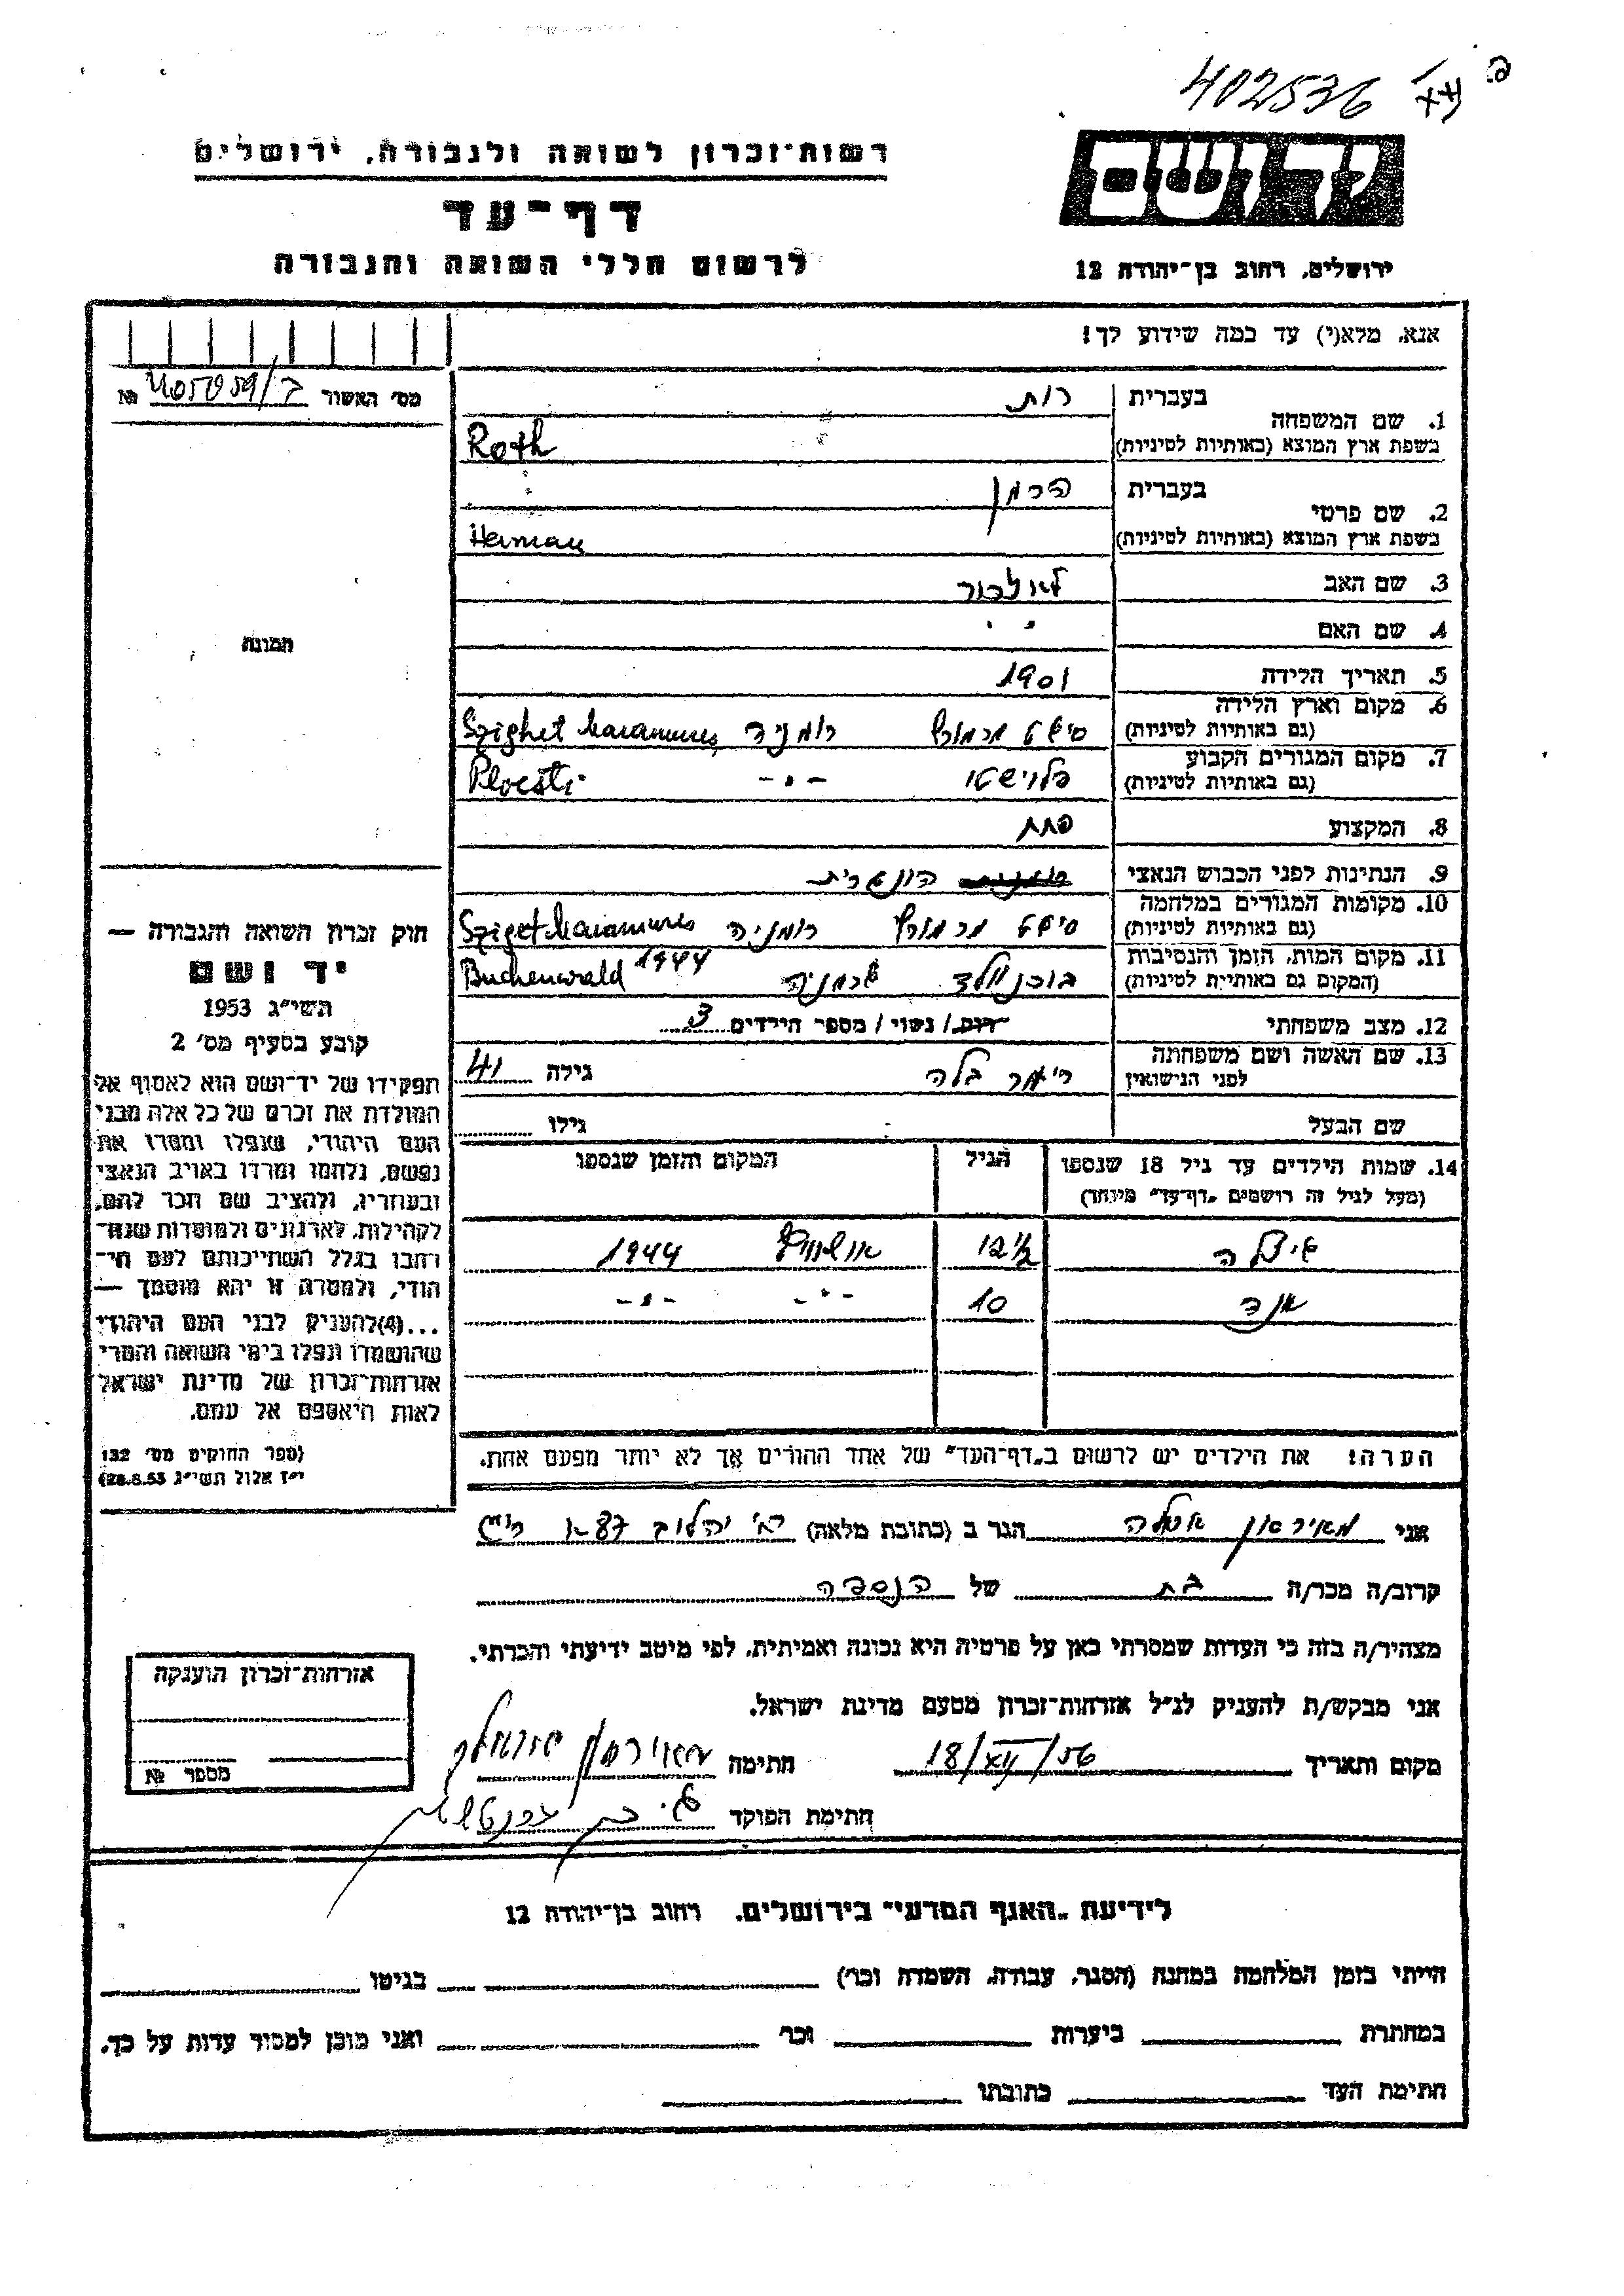 402536
רשות־זכרון לשואה ולגבורה, ירושלים
דף־עד
לרשום חללי השואה והגבורה
יד ושם
ירושלים, רחוב בן־יהודה 12
אנא, מלא(י) עד כמה שידוע לך!
מס׳ האשור №
1. שם המשפחה
בעברית רות
בשפת ארץ המוצא (באותיות לטיניות) Roth
2. שם פרטי
בעברית הרמן
בשפת ארץ המוצא (באותיות לטיניות) Herman
3. שם האב
4. שם האם
5. תאריך הלידה 1901
6. מקום וארץ הלידה
(גם באותיות לטיניות) סיגט מרמורש רומניה Szighet Maramures
7. מקום המגורים הקבוע
(גם באותיות לטיניות) פלוישטי -"- Ploesti
8. המקצוע פחח
9. הנתינות לפני הכבוש הנאצי הונגרית
10. מקומות המגורים במלחמה
(גם באותיות לטיניות) סיגט מרמורש רומניה Sziget Maramures
11. מקום המות, הזמן והנסיבות
(המקום גם באותיות לטיניות) בוכנוולד גרמניה 1944 Buchenwald
12. מצב משפחתי רווק / נשוי / מספר הילדים 3
13. שם האשה ושם משפחתה
לפני הנישואין בלה גילה 41
שם הבעל גילו
14. שמות הילדים עד גיל 18 שנספו
(מעל לגיל זה רושמים „דף־עד" מיוחד)
הגיל
המקום והזמן שנספו
גיזלה 12½ אושוויץ 1944
10 -"- -"-
הערה! את הילדים יש לרשום ב„דף־העד" של אחד ההורים אך לא יותר מפעם אחת.
תמונה
חוק זכרון השואה והגבורה —
יד ושם
תשי״ג 1953
קובע בסעיף מס׳ 2
תפקידו של יד־ושם הוא לאסוף אל
המולדת את זכרם של כל אלה מבני
העם היהודי, שנפלו ומסרו את
נפשם, נלחמו ומרדו באויב הנאצי
ובעוזריו, ולהציב שם וזכר להם,
לקהילות, לארגונים ולמוסדות שנח־
רבו בגלל השתייכותם לעם הי־
הודי, ולמטרה זו יהא מוסמך —
...(4)להעניק לבני העם היהודי
שהושמדו ונפלו בימי השואה והמרי
אזרחות־זכרון של מדינת ישראל
לאות היאספם אל עמם.
(ספר החוקים מס׳ 132
י״ז אלול תשי״ג 28.8.53)
אני מאירסון הגר ב (כתובת מלאה)
קרוב/ה מכר/ה בת של הנספה
מצהיר/ה בזה כי העדות שמסרתי כאן על פרטיה היא נכונה ואמיתית, לפי מיטב ידיעתי והכרתי.
אני מבקש/ת להעניק לנ״ל אזרחות־זכרון מטעם מדינת ישראל.
מקום ותאריך 18/XII/56 חתימה מאירסון
חתימת הפוקד
אזרחות־זכרון הוענקה
מספר №
לידיעת „האגף המדעי" בירושלים, רחוב בן־יהודה 12
הייתי בזמן המלחמה במחנה (הסגר, עבודה, השמדה וכו׳) בגיטו
במחתרת ביערות וכו׳ ואני מוכן למסור עדות על כך.
חתימת העד כתובתו